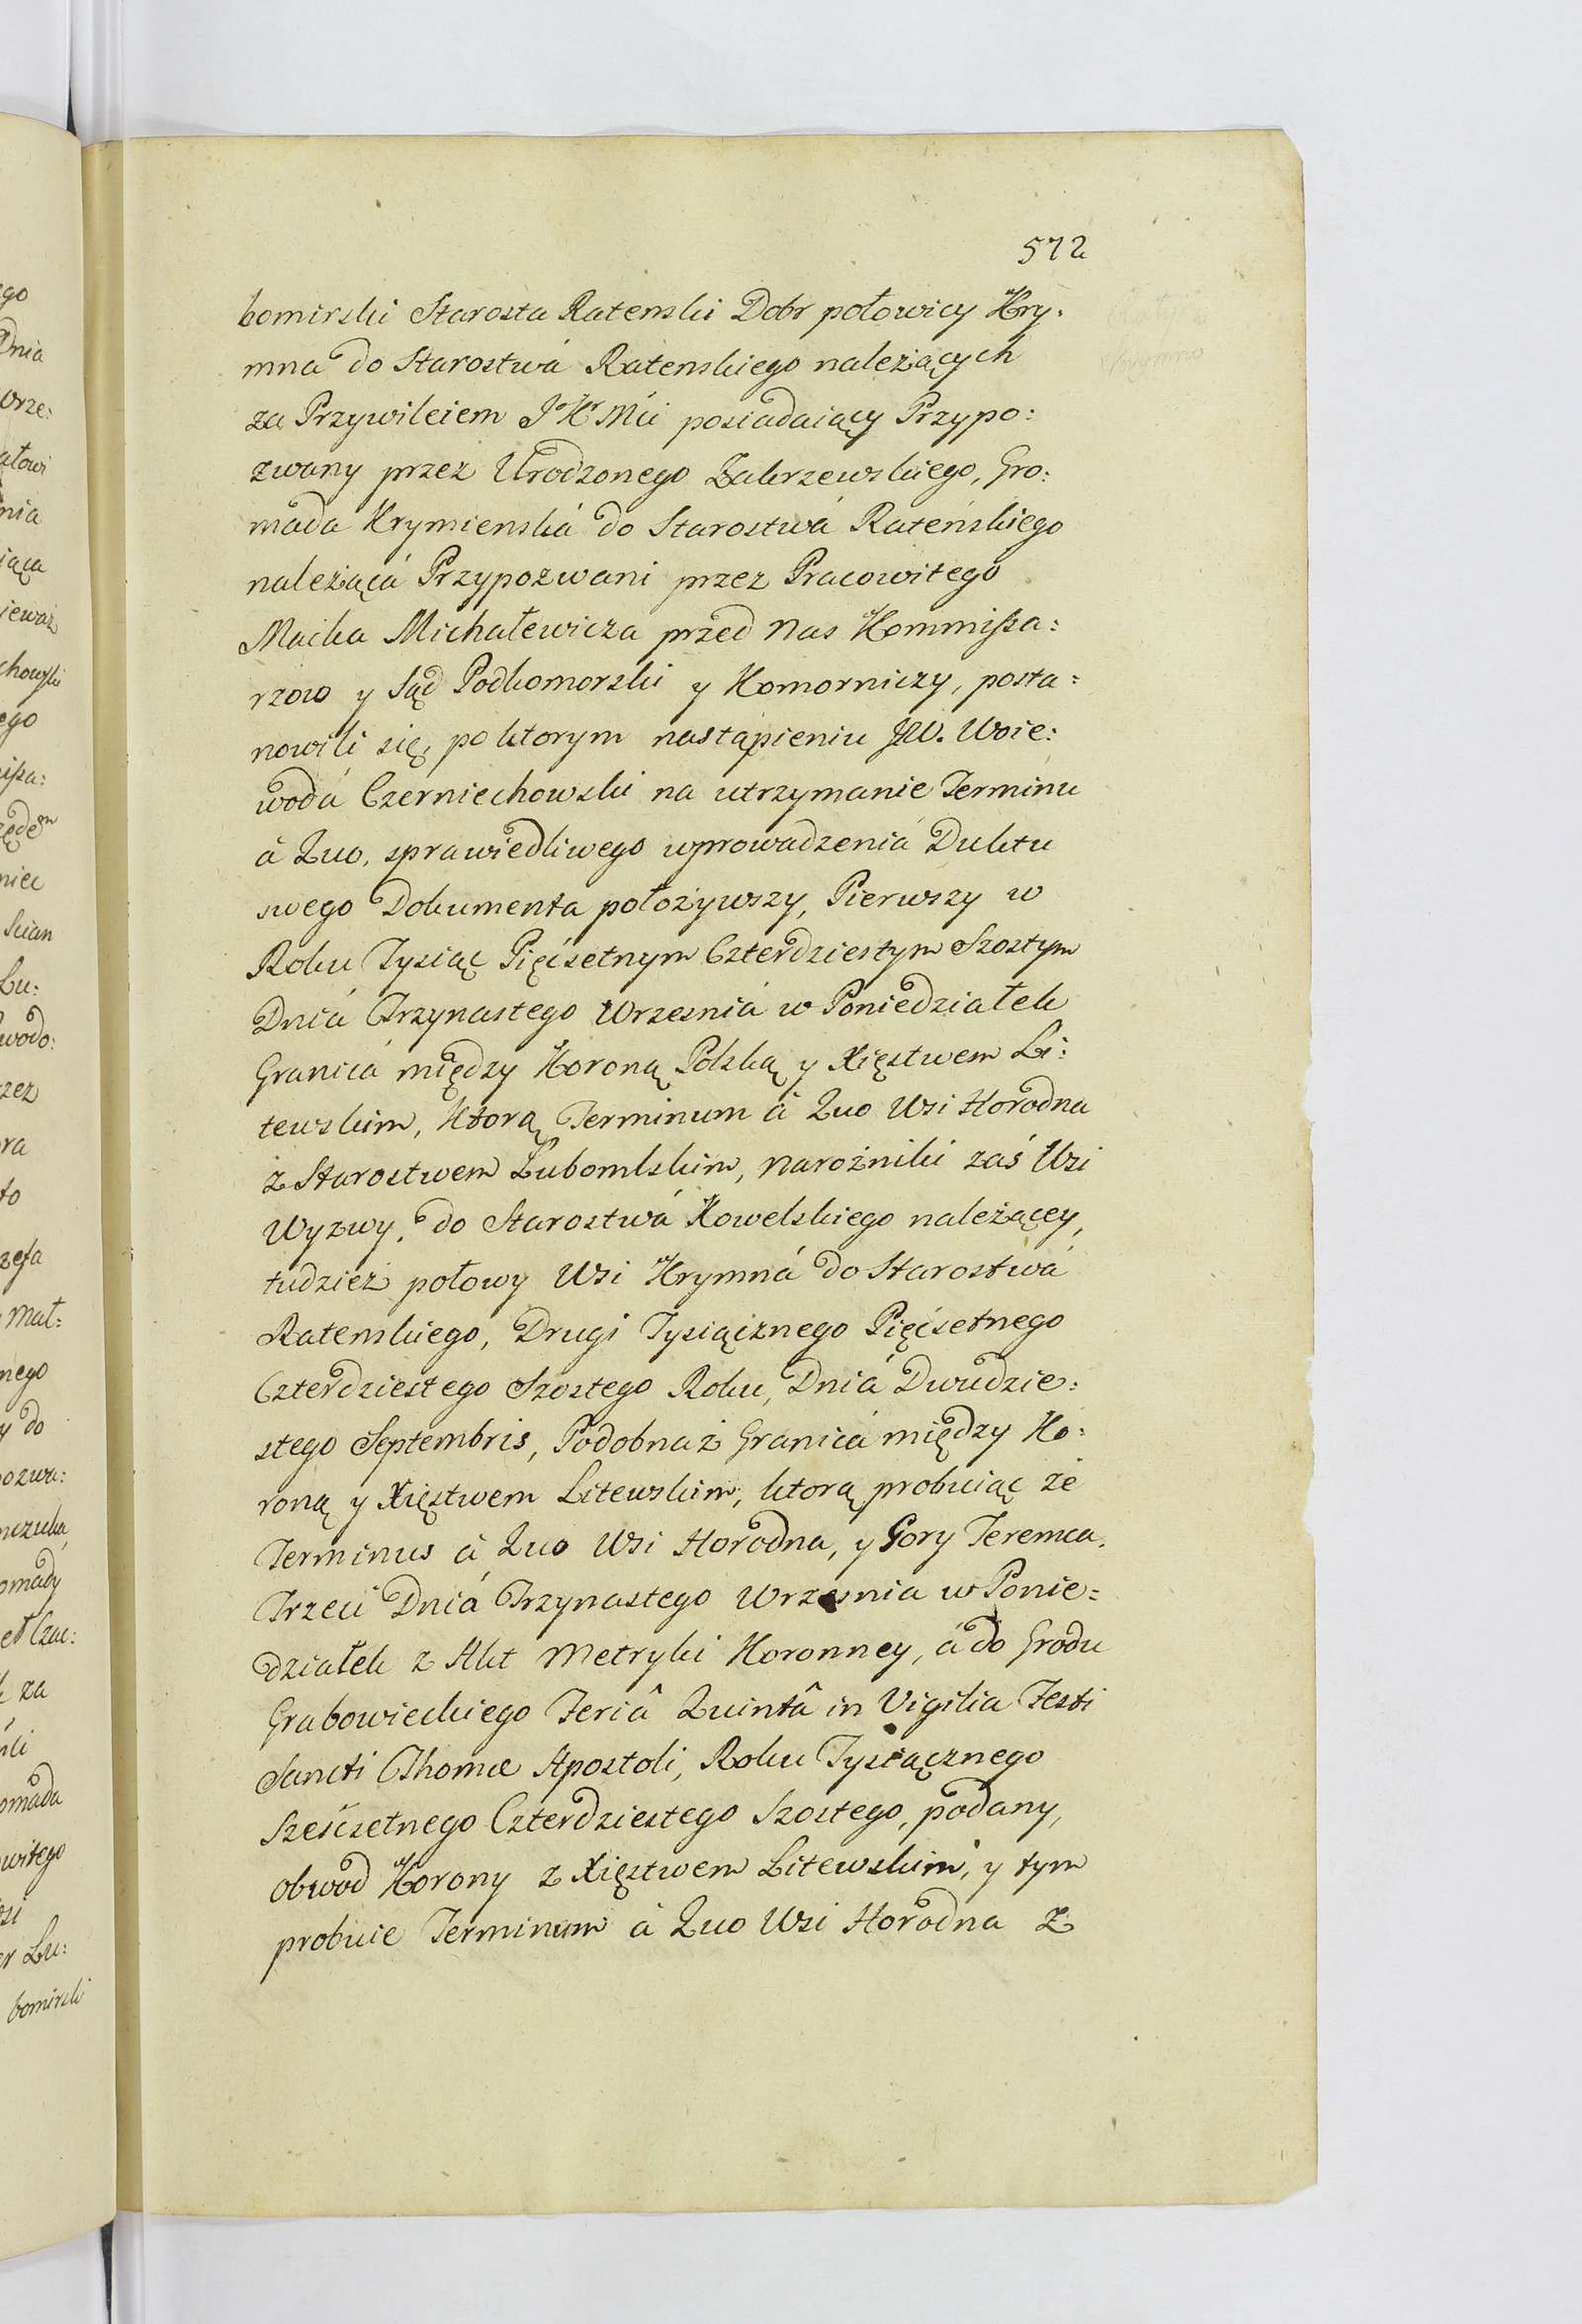 572
bomirski Starosta Ratenski Dobr połowicy Kry:
mna do Starostwá Ratenskiego należących
za Przywileiem JoKrMći posiadaiący Przypo:
zwany przez Urodzonego Zakrzewskiego, Gro:
mada Krymienská do Starostwá Rateńskiego
należącá Przypozwani przez Pracowitego
Maćka Michałewicza przed Nas Kommißa:
rzow y Sąd Podkomorski y Komorniczy, posta:
nowili się, po ktorym nastąpieniu JW. Woie:
wodá Czerniechowski na utrzymanie Terminu
à Quo, sprawiedliwego wprowadzeniá Duktu
swego Dokumenta położywszy, Pierwszy w
Roku Tysiąc Pięćsetnym Czterdziestym Szostym
Dniá Trzynastego Wrzesniá w Poniedziałek
Granicá między Koroną Polską y Xięstwem Li:
tewskim, Ktorą Terminum à Quo Wsi Horodna
z Starostwem Lubomlskim, narożniki zaś Wsi
Wyzwy, do Starostwá Kowelskiego należącey,
tudzież połowy Wsi Krymná do Starostwá
Ratenskiego, Drugi Tysiącznego Pięćsetnego
Czterdziestego Szostego Roku, Dniá Dwudzie:
stego Septembris, Podobnaż Granicá między Ko:
roną y Xięstwem Litewskim, ktorą probuiąc że
Terminus à Quo Wsi Horodna, y Gory Teremca.
Trzeci Dniá Trzynastego Wrzesnia w Ponie:
działek z Akt Metryki Koronney, á do Grodu
Grabowieckiego Feriâ Quintâ in Vigilia Festi
Sancti Thomæ Apostoli, Roku Tysiącznego
Sześćsetnego Czterdziestego Szostego, podany,
obwod Korony z Xięstwem Litewskim, y tym
probuie Terminum à Quo Wsi Horodna z